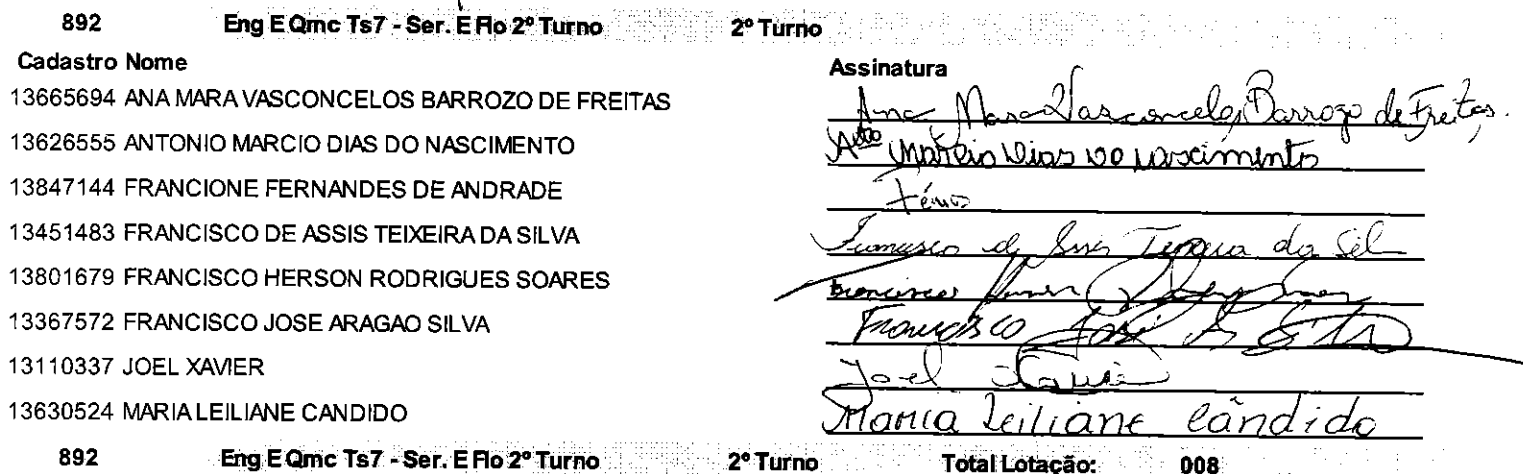 892 Eng E Qmc Ts7 - Ser. E Flo 2º Turno 2º Turno
Cadastro Nome Assinatura
13665694 ANA MARA VASCONCELOS BARROZO DE FREITAS Ana Mara Vasconcelos Barrozo de Freitas.
13626555 ANTONIO MARCIO DIAS DO NASCIMENTO Atº Marcio Dias do nascimento
13847144 FRANCIONE FERNANDES DE ANDRADE
13451483 FRANCISCO DE ASSIS TEIXEIRA DA SILVA Francisco de Assis Teixeira da Sil
13801679 FRANCISCO HERSON RODRIGUES SOARES Francisco
13367572 FRANCISCO JOSE ARAGAO SILVA Francisco José A Silva
13110337 JOEL XAVIER Joel Xavier
13630524 MARIA LEILIANE CANDIDO Maria Leiliane Cândido
892 Eng E Qmc Ts7 - Ser. E Flo 2º Turno 2º Turno Total Lotação: 008